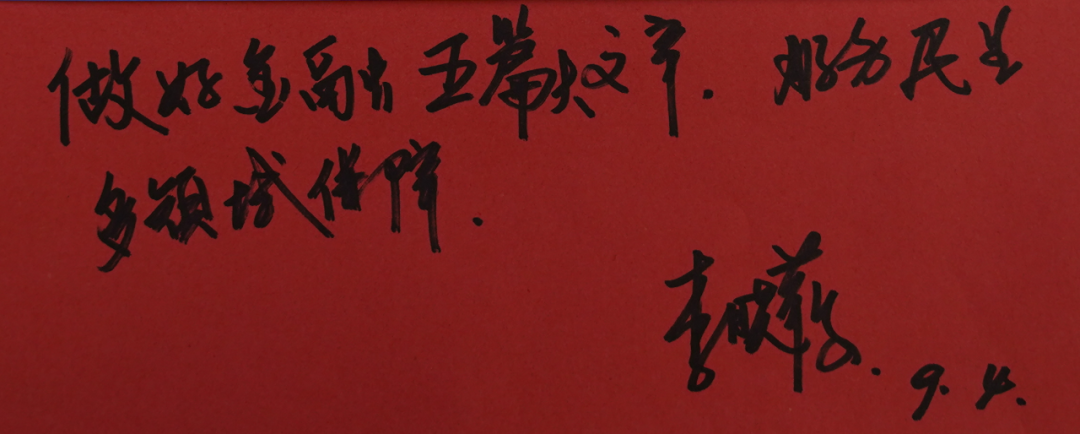 做好金融五篇大文章. 服务民生
多领域保障.
李
9.4.